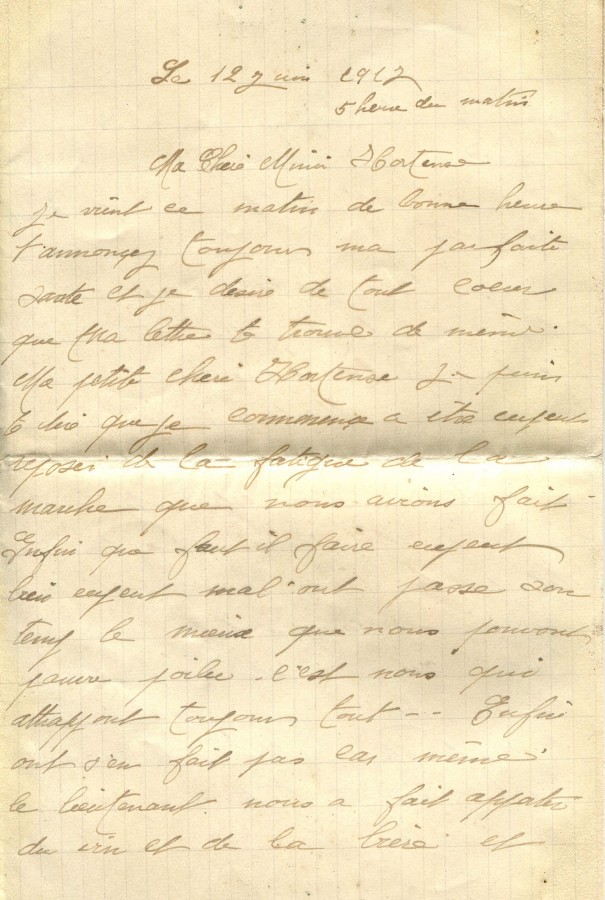 Le 12 juin 1917
5 heure du matin
Ma Cheri Mimi Hortense
Je vient ce matin de bonne heure
t'annonçez toujours ma parfaite
sante et je desire de tout coeur
que Ma lettre te trouve de même.
Ma petite cheri Hortense je puis
te dire que je commence a être
reposer de la fatigue de la
marche que nous avions fait
Enfin que faut il faire
bien mal ont passe son
temp le mieux que nous pouvont
pauvre poilu. c'est nous qui
attrappont toujours tout -- Enfin
ont s'en fait pas car même
le lieutenant nous a fait
du vin et de la bière et